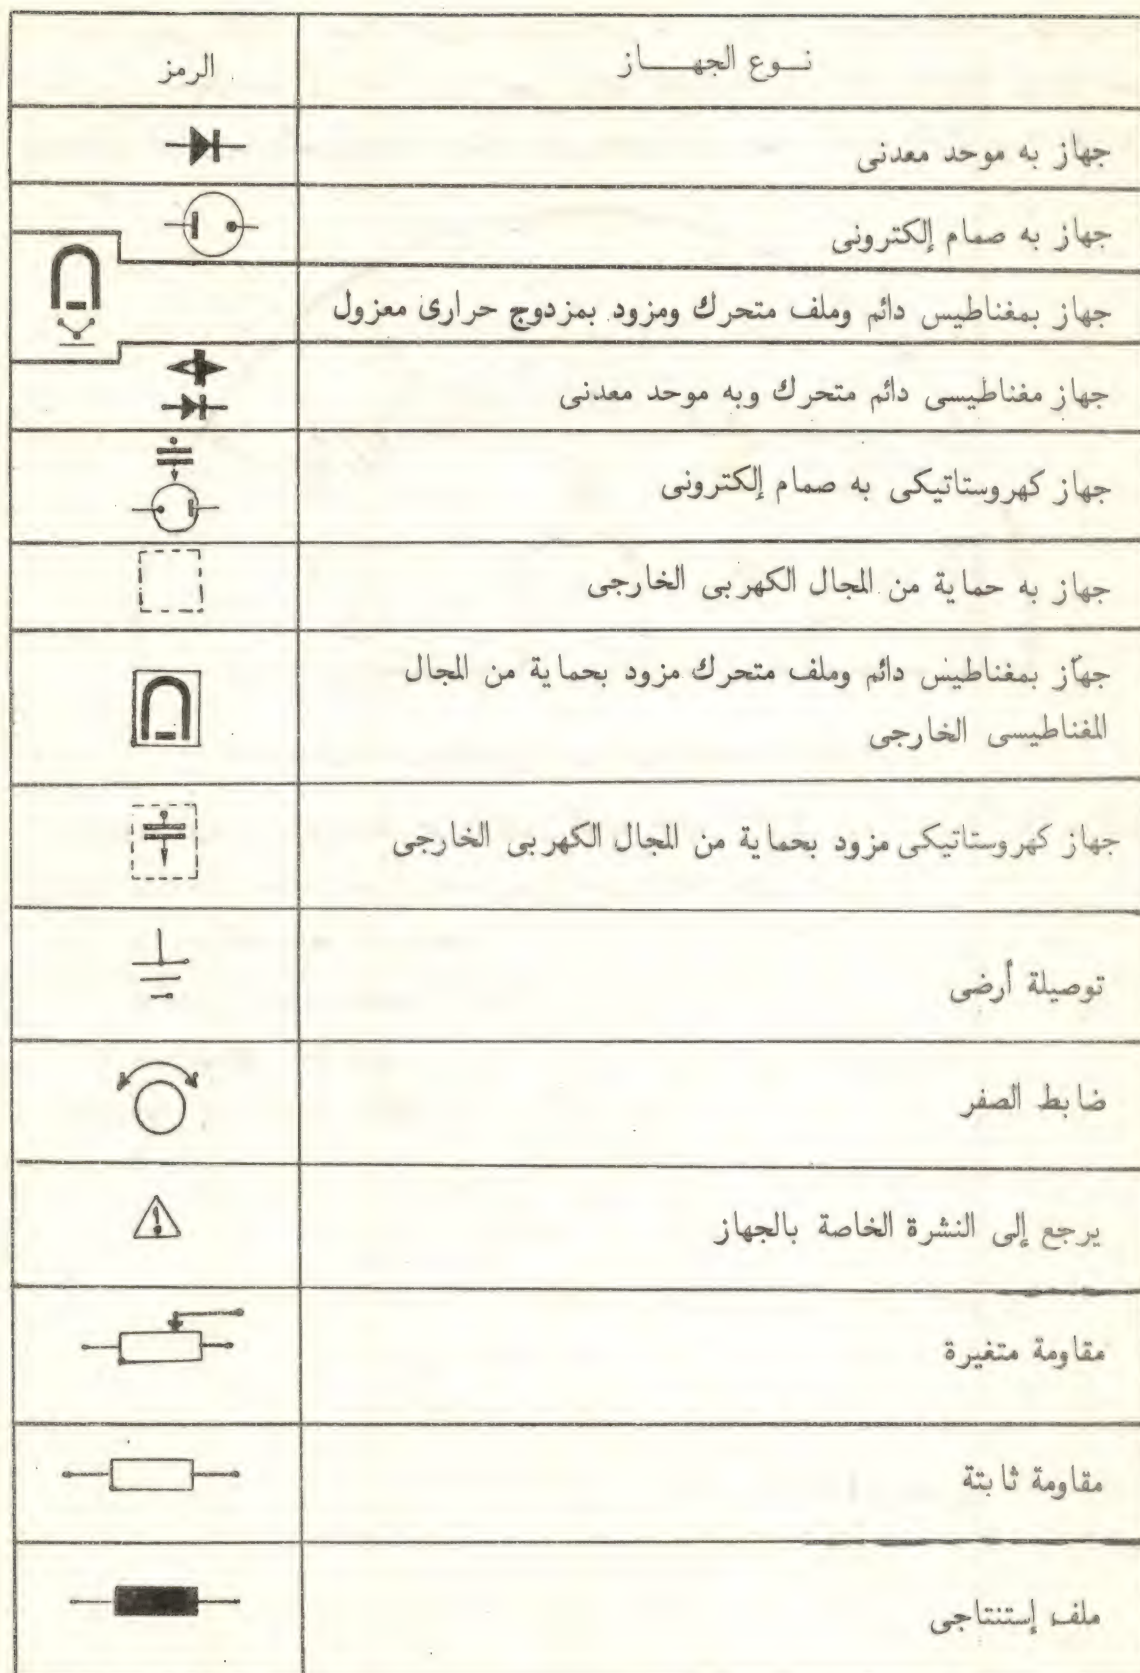 نوع الجهاز
الرمز
جهاز به موحد معدنى
جهاز به صمام إلكترونى
جهاز بمغناطيس دائم وملف متحرك ومزود بمزدوج حرارى معزول
جهاز مغناطيسى دائم متحرك وبه موحد معدنى
جهاز كهروستاتيكى به صمام إلكترونى
جهاز به حماية من المجال الكهربى الخارجى
جهاز بمغناطيس دائم وملف متحرك مزود بحماية من المجال
المغناطيسى الخارجى
جهاز كهروستاتيكى مزود بحماية من المجال الكهربى الخارجى
توصيلة أرضى
ضابط الصفر
يرجع إلى النشرة الخاصة بالجهاز
مقاومة متغيرة
مقاومة ثابتة
ملف إستنتاجى